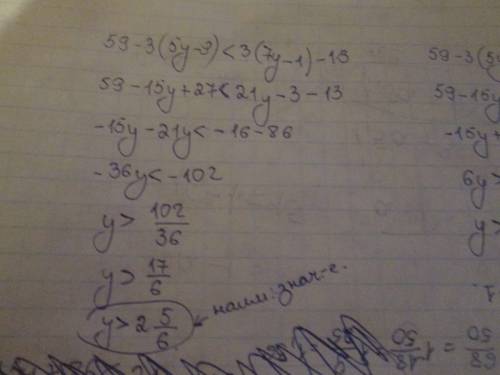 59-3(5y-9)<3(7y-1)-13
59-15y+27<21y-3-13
-15y-21y<-16-86
-36y<-102
y> 102/36
y> 17/6
y>2 5/6 наим. знач-е.
59-3(5
59-15y
-15y+
6y>
y>